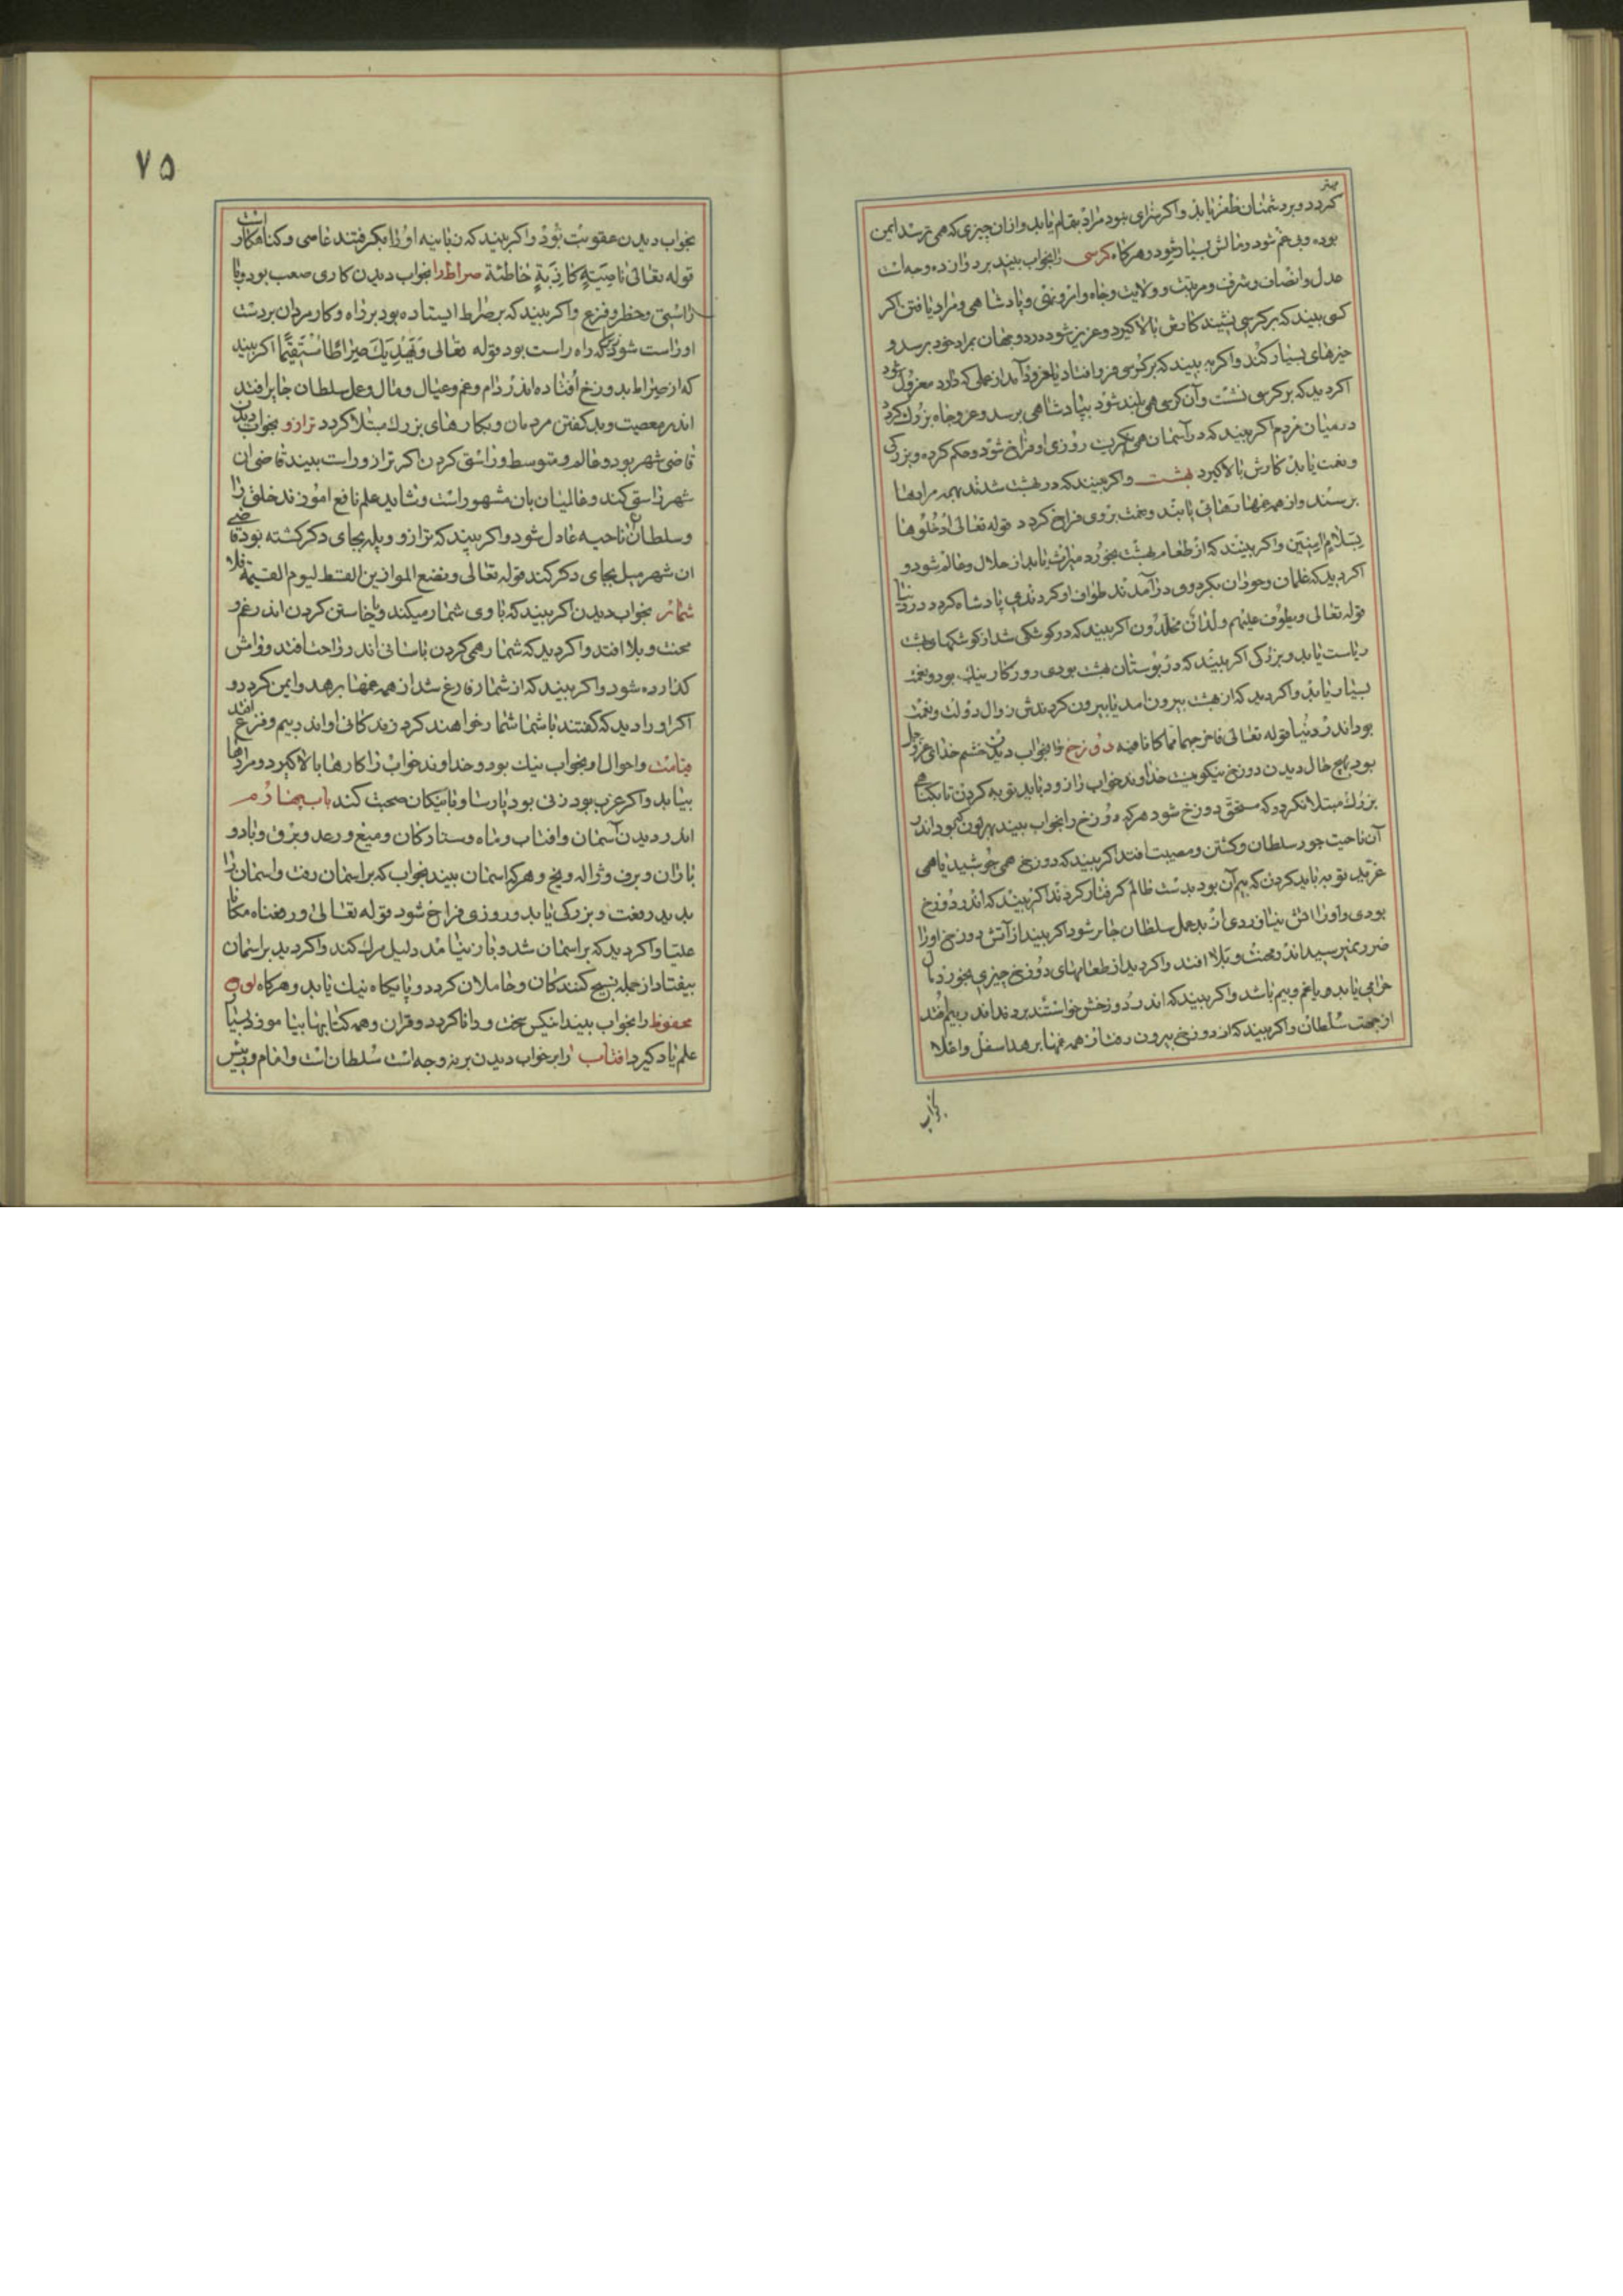 مهتر
کردد و بر دشمنان ظفر یابد و اکر سزای بود مراد بتمام یابد و ازان چیزی که همی ترسد ایمن
بوده و بی غم شود و مالش بسیار شود و هرکاه کرسی را بخواب بیند بر دوازده وجه است
عدل و انصاف و شرف و مرتبت و ولایت و جاه و ... و پادشاهی و مراد یافتن اکر
کسی بیند که بر کرسی نشیند کارش بالا کیرد و عزیز شود در دو جهان بمراد خود برسد و
خیرهای بسیار کند و اکر به بیند که بر کرسی فرو افتاد یا بلغزد از عملی که دارد معزول شود
اکر دید که بر کرسی نشست و آن کرسی همی بلند شود بپادشاهی برسد و عز و جاه بزرک کردد
در میان مردم اکر بیند که در آسمان همی نکریست روزی او فراخ شود و حکم کرده و بزرکی
و نعمت یابد کارش بالا کیرد بهشت و اکر بیند که در بهشت شدند بهمه مرادها
برسند و از همه غمها رهائی یابند و نعمت بروی فراخ کردد قوله تعالی ادخلوها
بسلام امنین و اکر بینند که از طعام بهشت بخورد میراث یابد از حلال و عالم شود و
اکر دید که غلمان و حوران بکرد وی در آمدند طواف او کردندی پادشاه کردد در دنیا
قوله تعالی و یطوف علیهم ولدان مخلدون اکر بیند که در کوشکی شد از کوشکهای بهشت
ریاست یابد و بزرکی اکر بیند که در بوستان بهشت بودی روزکار نیک بود و نعمت
بسیار یابد و اکر دید که از بهشت بیرون امد یا بیرون کردندش زوال دولت و نعمت
بود اندر دنیا قوله تعالی فاخرجهما مما کانا فیه دوزخ را بخواب دیدن خشم خدای عز و جل
بود بهیچ حال دیدن دوزخ نیکو نیست خداوند خواب را زود باید توبه کردن تا بکناهی
بزرک مبتلا نکردد که مستحق دوزخ شود هرکه دوزخ را بخواب بیند بهر کونه که بود اندر
آن ناحیت جور سلطان و کشتن و مصیبت افتد اکر بیند که دوزخ همی خوشید یا همی
غرید توبه باید کردن که بیم آن بود بدست ظالم کرفتار کردند اکر بیند که اندر دوزخ
بودی و اورا اتش بیازردی از بد عمل سلطان جابر شود اکر بیند از آتش دوزخ اورا
ضرر نمیرسید اندر محنت و بلا افتد و اکر دید از طعامهای دوزخ چیزی بخورد مال
حرامی یابد و یا غم و بیم باشد و اکر بیند که اندر دوزخش خواستند برد ... اندر بیم افتد
از جهت سلطان و اکر بیند که از دوزخ بیرون رفت از همه غمها برهد اسفل و اعلا
بخواب
۷۵
بخواب دیدن عقوبت بود و اکر بیند که زبانیه اورا بکرفتند عاصی و کناهکار است
قوله تعالی ناصیة کاذبة خاطئة صراط را بخواب دیدن کاری صعب بود و با
راستی و خطر و فزع و اکر بیند که بر صراط ایستاده بود بر راه و کار مردان بر دست
او راست شود زیراکه راه راست بود قوله تعالی و یهدیک صراطا مستقیما اکر بیند
که از صراط بدوزخ افتاده اندر دام و غم و عیال و مال و عمل سلطان جابر افتد
اندر معصیت و بد کفتن مردمان و بکارهای بزرک مبتلا کردد ترازو بخواب دیدن
قاضی شهر بود و عالم و متوسط و راستی کردن اکر ترازو راست بیند قاضی ان
شهر راستی کند و عالمیان بان مشهور است و شاید علم نافع اموزند خلق را
و سلطان ان ناحیه عادل شود و اکر بیند که ترازو و پله بجای دکر کشته بود قاضی
ان شهر میل بجای دکر کند قوله تعالی و نضع الموازین القسط لیوم القیمة فلا
شمار بخواب دیدن اکر بیند که با وی شمار میکند و یا خاستن کردن اندر غم و
محنت و بلا افتد و اکر دید که شمار همی کردن باسانی اندر راحت افتد و وامش
کذارده شود و اکر بیند که از شمار فارغ شد از همه غمها برهد و ایمن کردد و
اکر او را دید که کفتند با شما شمار خواهند کرد زندکانی او اندر بیم و فزع افتد
قیامت و احوال او بخواب نیک بود و خداوند خواب را کارها بالا کیرد و مرادها
بیابد و اکر عزب بود زنی بود پارسا و با نیکان صحبت کند باب چهارم
اندر دیدن آسمان و افتاب و ماه و ستارکان و میغ و رعد و برق و باد و
باران و برف و ژاله و یخ و هر که اسمان بیند بخواب که بر اسمان رفت و اسمان را
بدید رفعت و بزرکی یابد و روزی فراخ شود قوله تعالی و رفعناه مکانا
علیا و اکر دید که بر اسمان شد و باز نیامد دلیل مرک کند و اکر دید بر اسمان
بیفتاد از جمله تسبیح کنندکان و حاملان کردد و پایکاه نیک یابد و هرکاه لوح
محفوظ را بخواب بیند انکس سخت و دانا کردد و قران و همه کتابها بیاموزد و بسیار
علم یاد کیرد افتاب را بر خواب دیدن بر نه وجه است سلطان است و امام و رییس